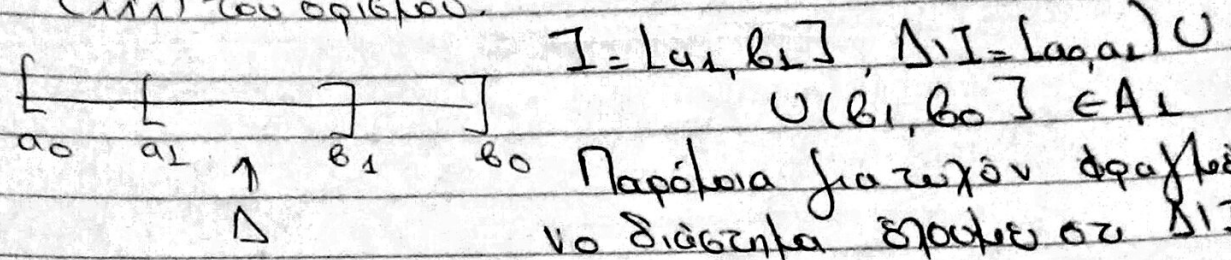 (iii) του ορισμου.
I = [α1, β1], Δ\I = [α0, α1) ∪
∪ (β1, β0] ∈ A1
α0 α1 β1 β0
Δ
Παρόμοια για τυχόν φραγμέ
νο διάστημα έχουμε οτι Δ\I